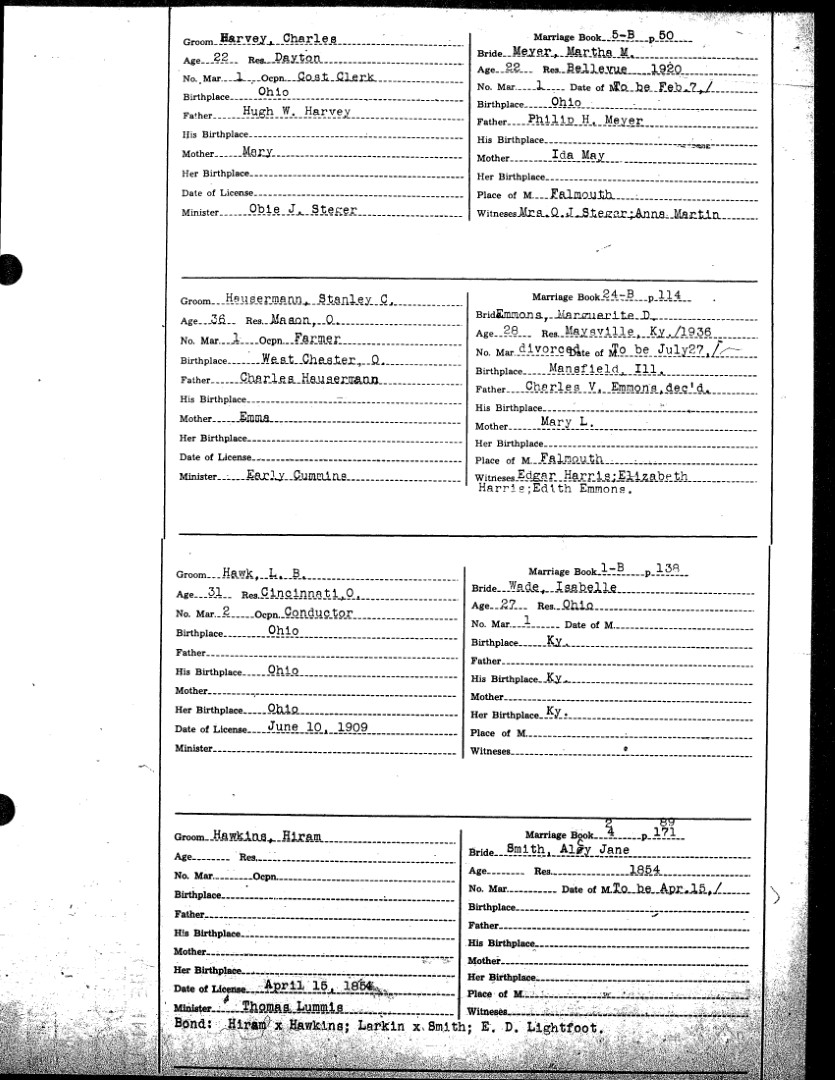 Groom Harvey, Charles
Age 22 Res. Dayton
No. Mar 1 Ocpn. Cost Clerk
Birthplace Ohio
Father Hugh W. Harvey
His Birthplace
Mother Mary
Her Birthplace
Date of License
Minister Obie J. Steger
Marriage Book 5-B p. 50
Bride Meyer, Martha M.
Age 22 Res. Bellevue 1920
No. Mar 1 Date of M To be Feb.7,/
Birthplace Ohio
Father Philip H. Meyer
His Birthplace
Mother Ida May
Her Birthplace
Place of M. Falmouth
Witnesses Mrs.O.J.Steger;Anna Martin
Groom Hausermann, Stanley C.
Age 36 Res. Mason, O.
No. Mar 1 Ocpn. Farmer
Birthplace West Chester, O.
Father Charles Hausermann
His Birthplace
Mother Emma
Her Birthplace
Date of License
Minister Early Cummins
Marriage Book 24-B p. 114
Bride Emmons, Marguerite D.
Age 28 Res. Maysville, Ky./1936
No. Mar divorced Date of M To be July27,/
Birthplace Mansfield, Ill.
Father Charles V. Emmons,dec'd.
His Birthplace
Mother Mary L.
Her Birthplace
Place of M. Falmouth
Witnesses Edgar Harris;Elizabeth
Harris;Edith Emmons.
Groom Hawk, L. B.
Age 31 Res. Cincinnati,O.
No. Mar 2 Ocpn. Conductor
Birthplace Ohio
Father
His Birthplace Ohio
Mother
Her Birthplace Ohio
Date of License June 10, 1909
Minister
Marriage Book 1-B p. 138
Bride Wade, Isabelle
Age 27 Res. Ohio
No. Mar 1 Date of M.
Birthplace Ky.
Father
His Birthplace Ky.
Mother
Her Birthplace Ky.
Place of M.
Witnesses
Groom Hawkins, Hiram
Age Res.
No. Mar Ocpn.
Birthplace
Father
His Birthplace
Mother
Her Birthplace
Date of License April 15, 1854
Minister Thomas Lummis
2 89
Marriage Book 4 p. 171
Bride Smith, Jane
Age Res. 1854
No. Mar Date of M. To be Apr.15,/
Birthplace
Father
His Birthplace
Mother
Her Birthplace
Place of M
Witnesses
Bond: Hiram x Hawkins; Larkin x Smith; E. D. Lightfoot.